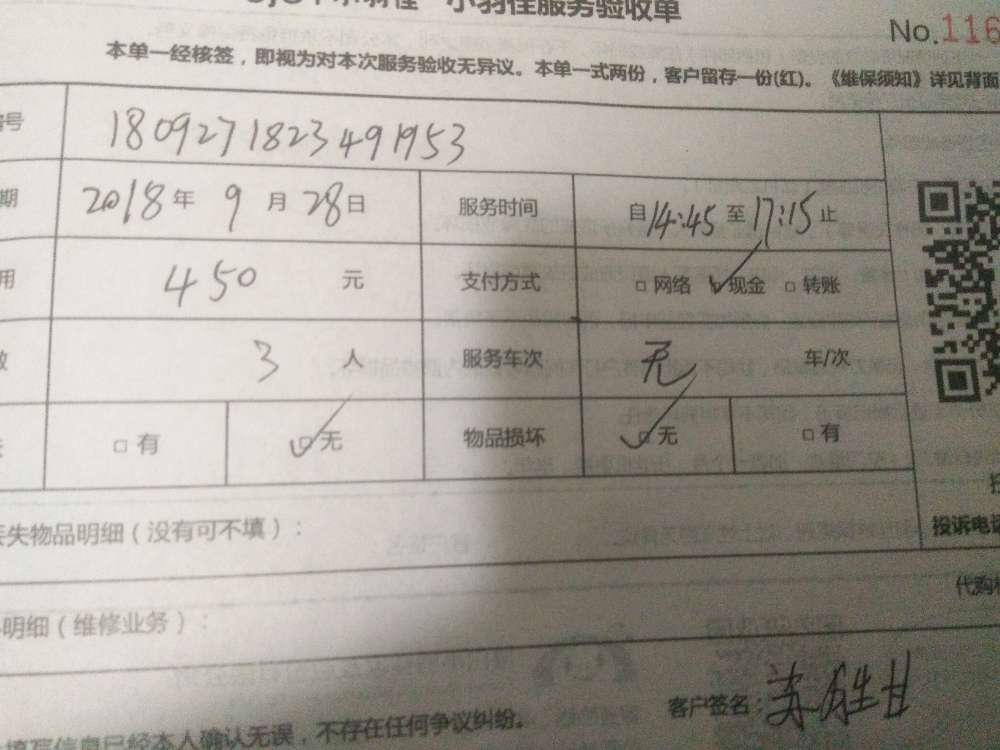 小羽佳服务验收单
No.116
本单一经核签，即视为对本次服务验收无异议。本单一式两份，客户留存一份(红)。《维保须知》详见背面
号 180927182349 1953
期 2018年 9 月 28日 服务时间 自14:45至17:15止
用 450 元 支付方式 □网络 ☑现金 □转账
3 人 服务车次 无 车/次
□有 ☑无 物品损坏 ☑无 □有
失物品明细（没有可不填）：
投诉电话
代购
明细（维修业务）：
客户签名：
填写信息已经本人确认无误，不存在任何争议纠纷。